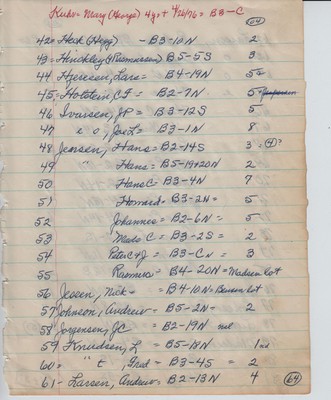 Kuhn= Mary (George) 4gr+ 4/26/76 = B3-C
64
42= Heck (Hegg) - B3-10N 2
43= Hinckley (+Rasmussen) B5-5S 3
44 Hjeresen, Lars= B4-19N 5
45= Holstein, CF = B2-7N 5
46. Ivarsen, JP = B3-12S 5
47 " , Joe L= B3-1N 8
48 Jensen, Hans= B2-14S 3 = 4?
49 " Hans= B5-19+20N 2
50 Hans C= B3-4N 7
51 Howard= B3-2N= 5
52 Johannes= B2-6N= 5
53 Mads C = B3-2S = 2
54 Peter C+J = B3-CN = 3
55 Rasmus= B4-20N = Madsen lot
56 Jessen, Nick= = B4-10N= Benson lot
57 Johnson, Andrew= B5-2N= 2
58 Jorgensen, JC = B2-19N nel
59 Knudsen, L = B5-18N 1
60= " t , Fred = B3-4S = 2
61- Larsen, Andrew= B2-13N 4
64